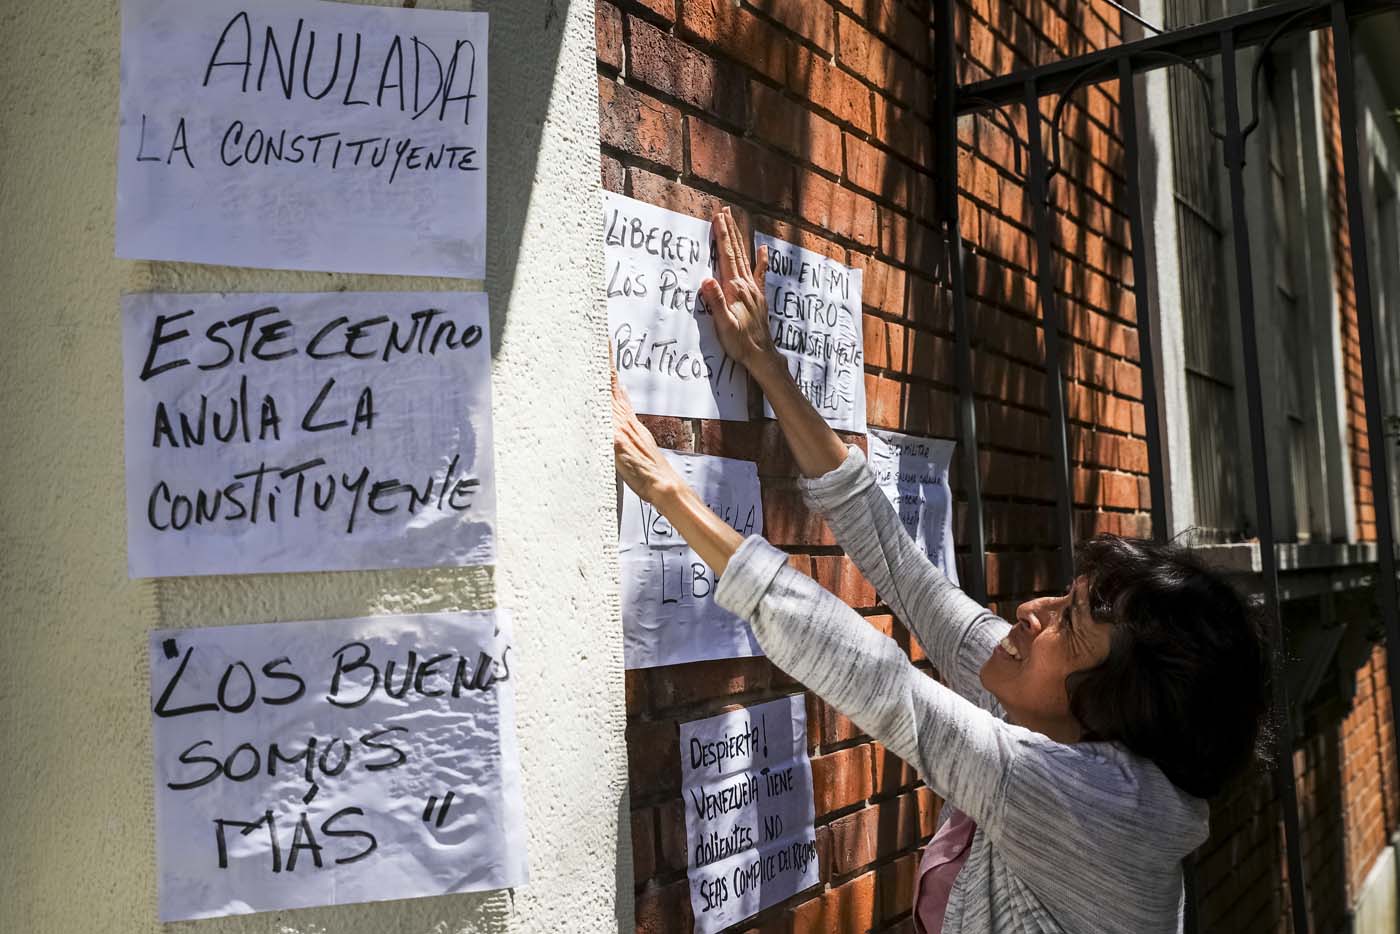 ANULADA
LA CONSTITUYENTE
ESTE CENTRO
ANULA LA
CONSTITUYENTE
"LOS BUENOS
SOMOS
MÁS"
LIBEREN A
LOS PRES
POLÍTICOS!!
AQUI EN MI
CENTRO
LA CONSTITUYENTE
ANULO
VENEZUELA
LIB
MILITAR
DESPIERTA!
VENEZUELA TIENE
dolientes NO
SEAS COMPLICE DEL REGIMEN